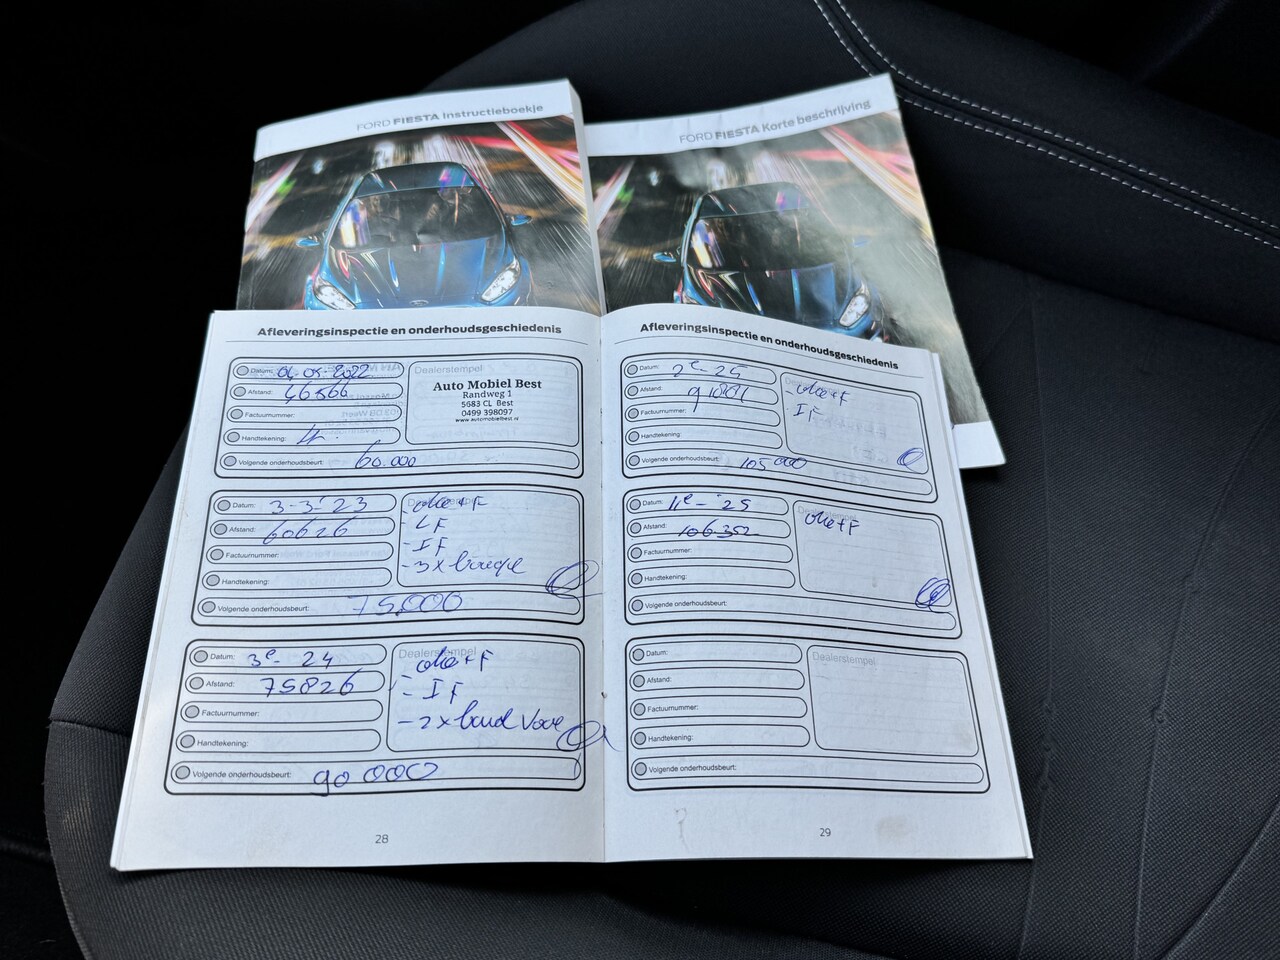 FORD FIESTA Instructieboekje
FORD FIESTA Korte beschrijving
Afleveringsinspectie en onderhoudsgeschiedenis
Datum: 04-05-2022
Afstand: 46566
Factuurnummer:
Handtekening:
Volgende onderhoudsbeurt: 60.000
Dealerstempel
Auto Mobiel Best
Randweg 1
5683 CL Best
0499 398097
www.automobielbest.nl
Datum: 3-3-'23
Afstand: 60626
Factuurnummer:
Handtekening:
Volgende onderhoudsbeurt: 75.000
olie+F
- LF
- IF
- 3x bougie
Datum: 3e- 24
Afstand: 75826
Factuurnummer:
Handtekening:
Volgende onderhoudsbeurt: 90 000
Dealerstempel
- olie+F
- IF
- 2x band voor
28
Afleveringsinspectie en onderhoudsgeschiedenis
Datum: 2e-25
Afstand:
Factuurnummer:
Handtekening:
Volgende onderhoudsbeurt: 105 000
Dealerstempel
- olie+F
IF
Datum: 11e-'25
Afstand: 106.352
Factuurnummer:
Handtekening:
Volgende onderhoudsbeurt:
olie+F
Datum:
Afstand:
Factuurnummer:
Handtekening:
Volgende onderhoudsbeurt:
Dealerstempel
29